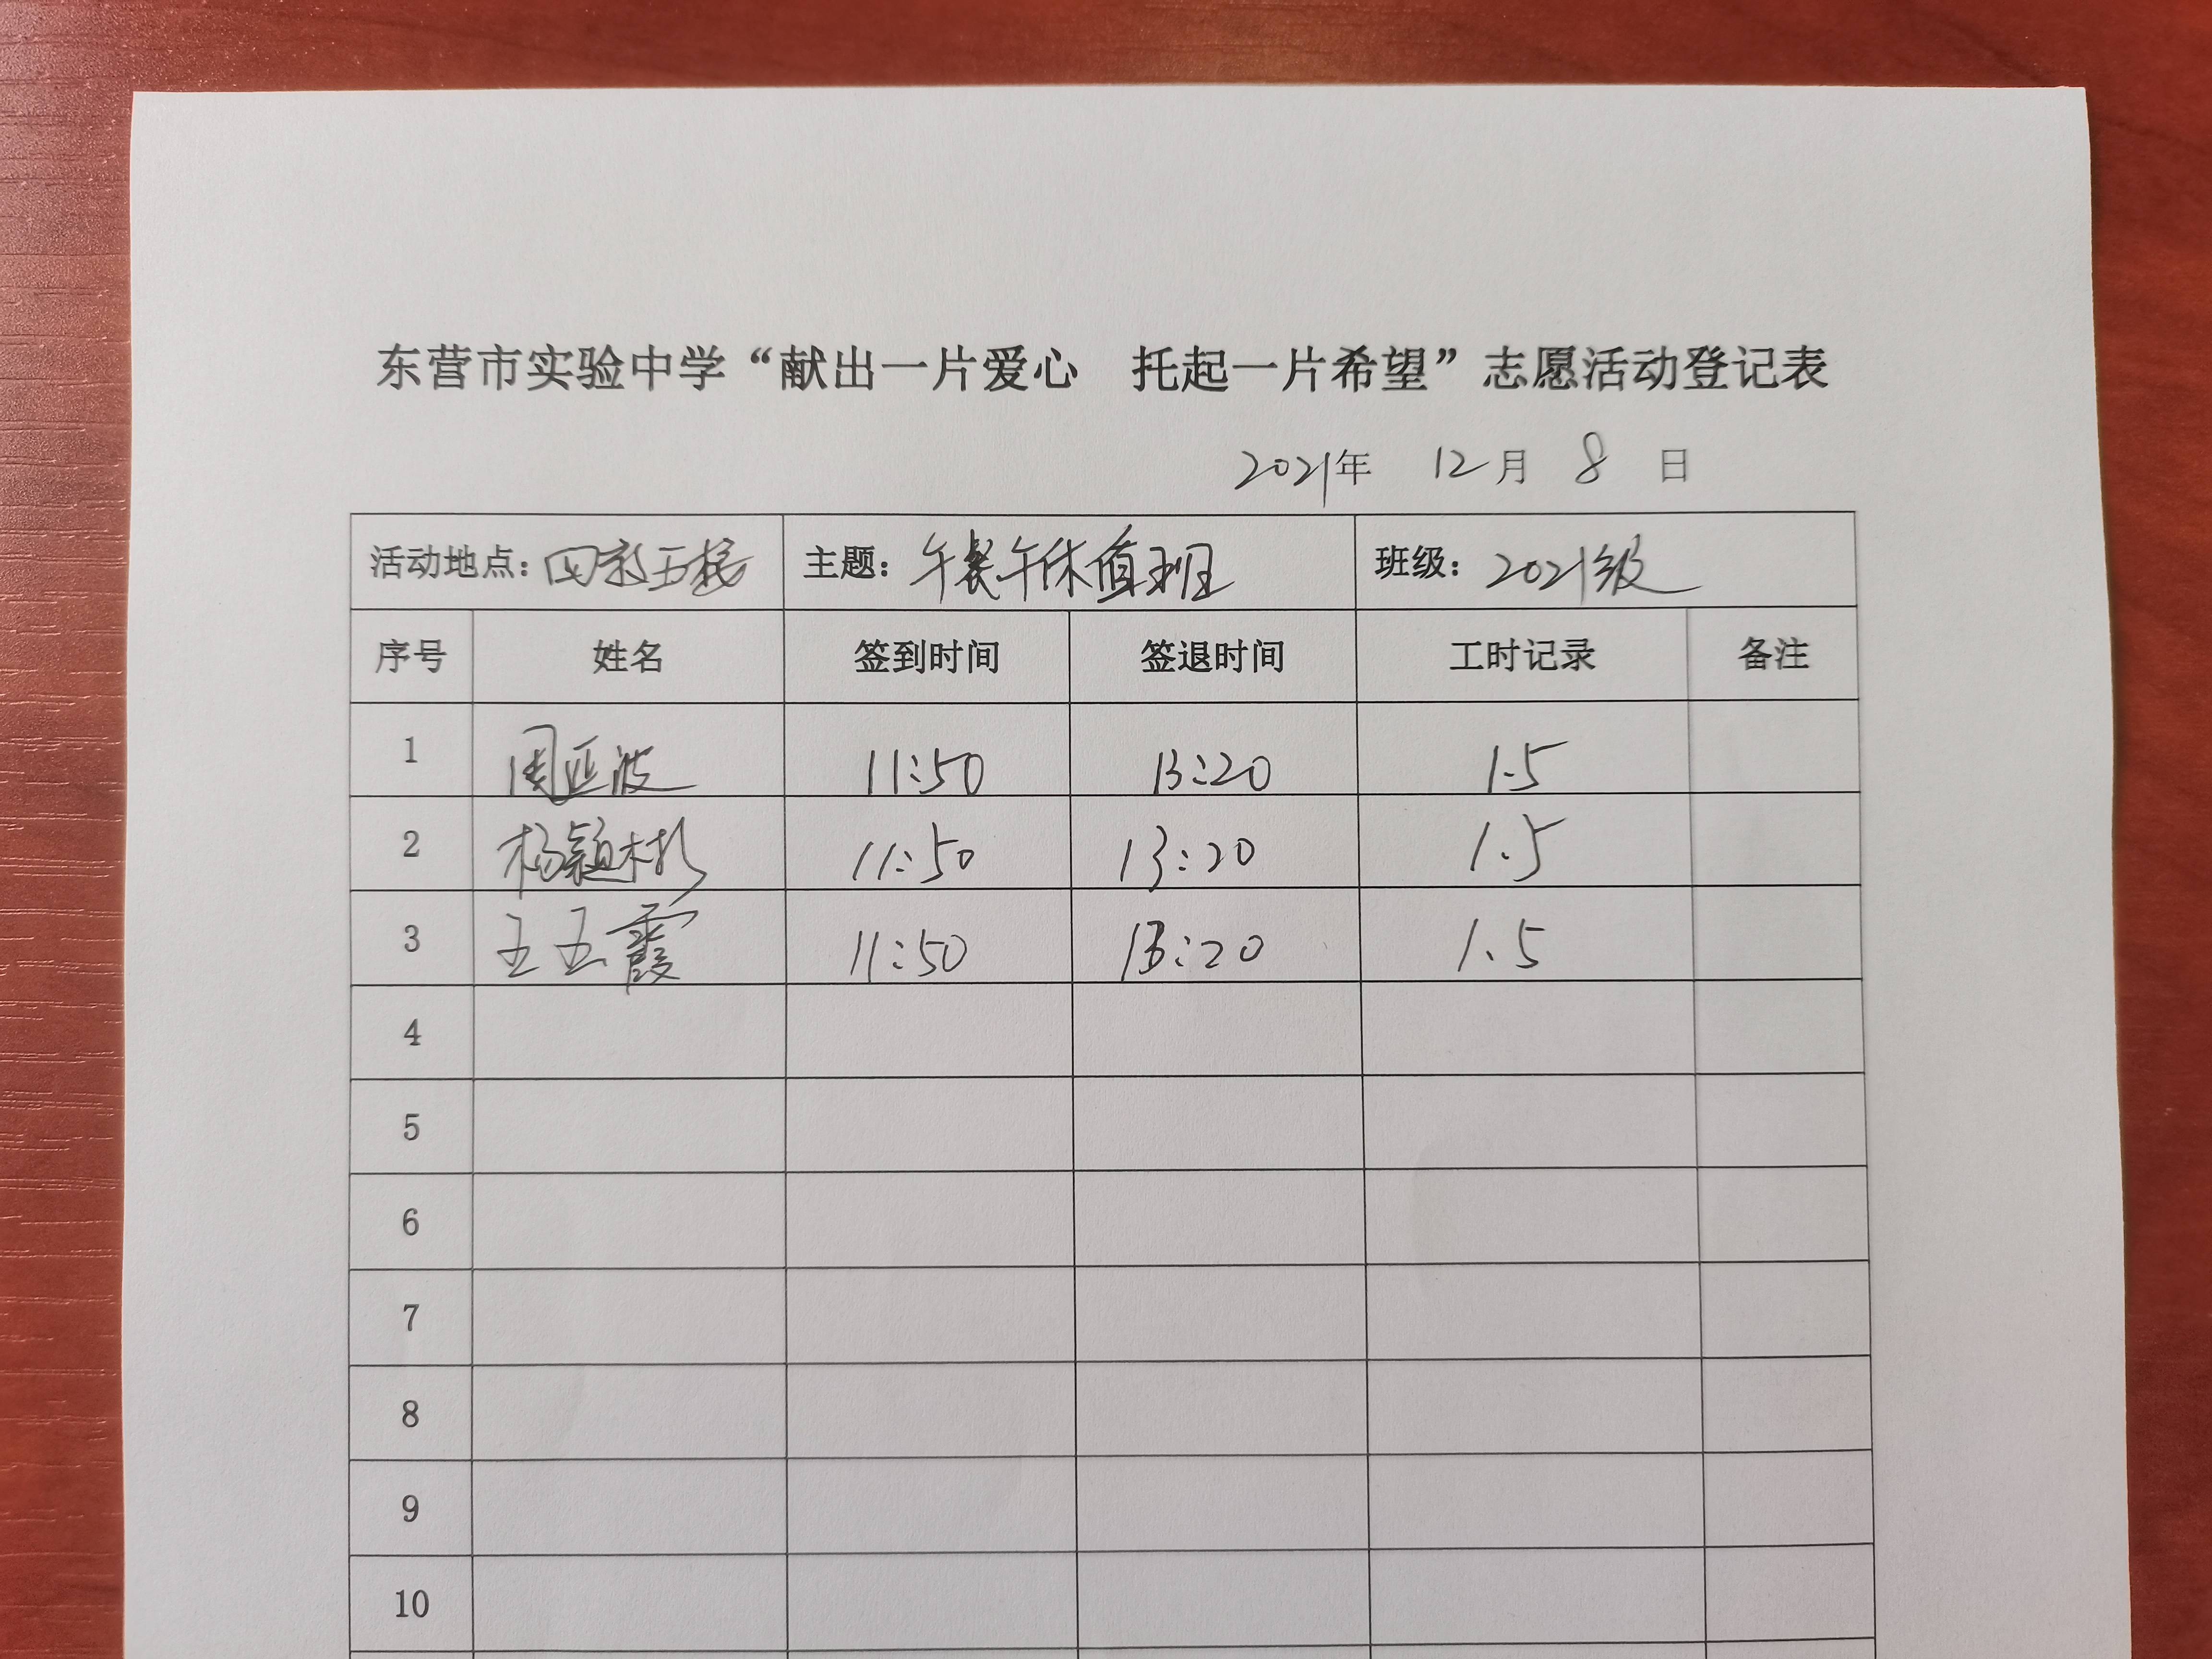 东营市实验中学“献出一片爱心 托起一片希望”志愿活动登记表
2021年 12月 8 日
活动地点：四教五楼 主题：午餐午休值班 班级：2021级
序号 姓名 签到时间 签退时间 工时记录 备注
1 周亚波 11:50 13:20 1.5
2 杨颖彬 11:50 13:20 1.5
3 王玉霞 11:50 13:20 1.5
4
5
6
7
8
9
10